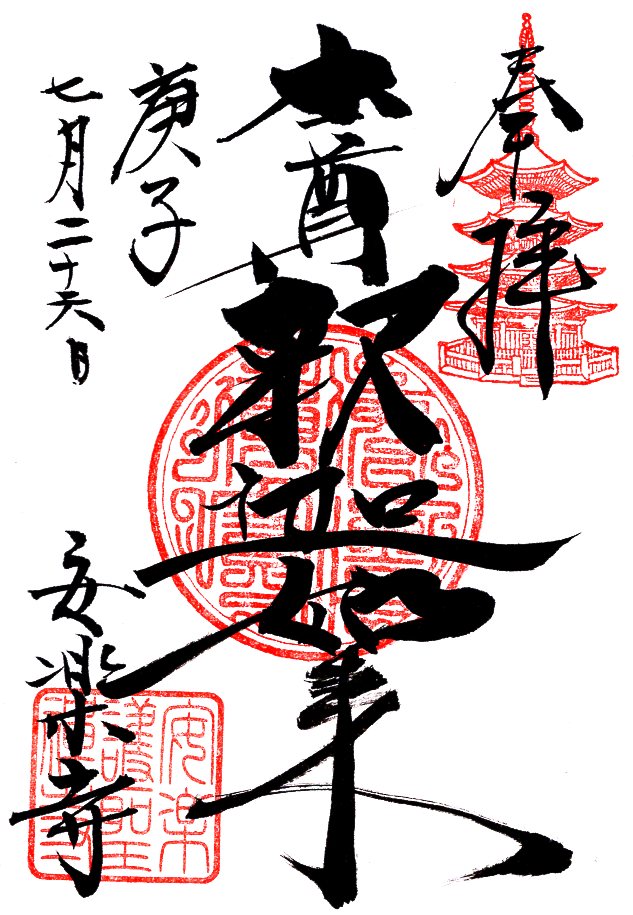 奉拝
本尊
釈迦如来
庚子
七月二十六日
安楽寺
安楽
護聖
禅寺